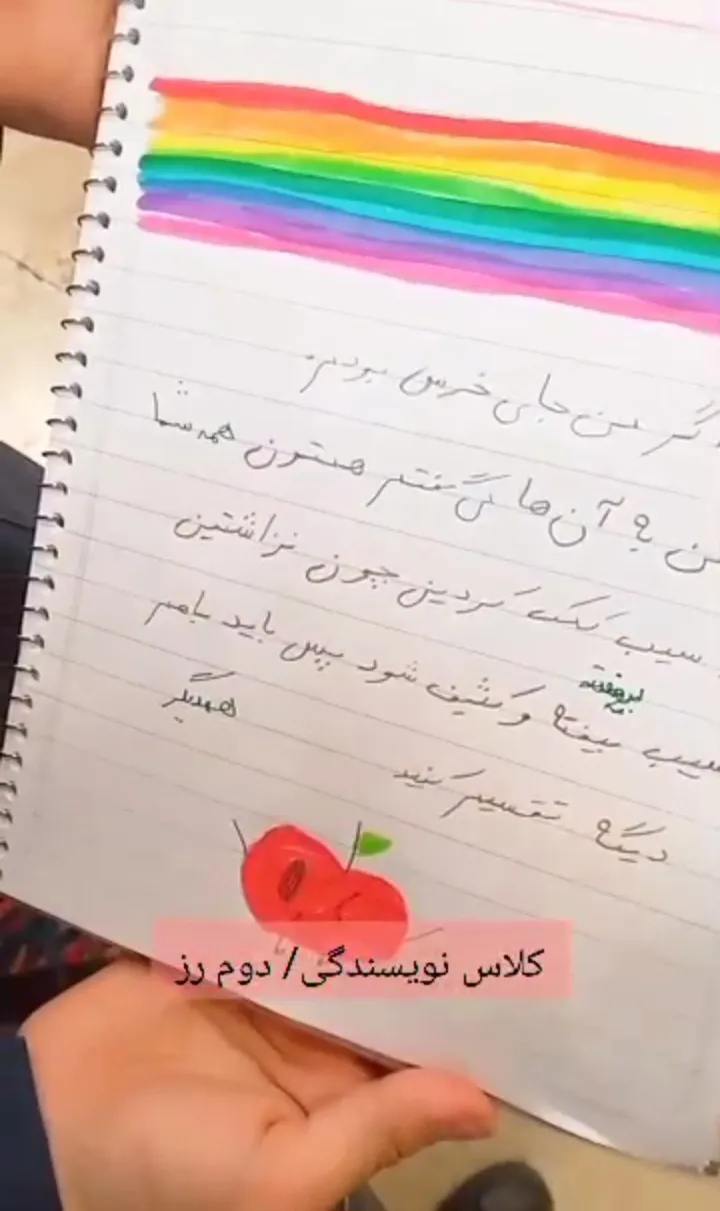 اگر من جای خرس بودم.
من به آن ها می گفتم همتون همه شما
سیب کمک کردین چون نزاشتین
بیوفته
سیب بیفته و کثیف شود پس باید باهم
همدیگر
دیگه تقسیم کنید
کلاس نویسندگی/ دوم رز